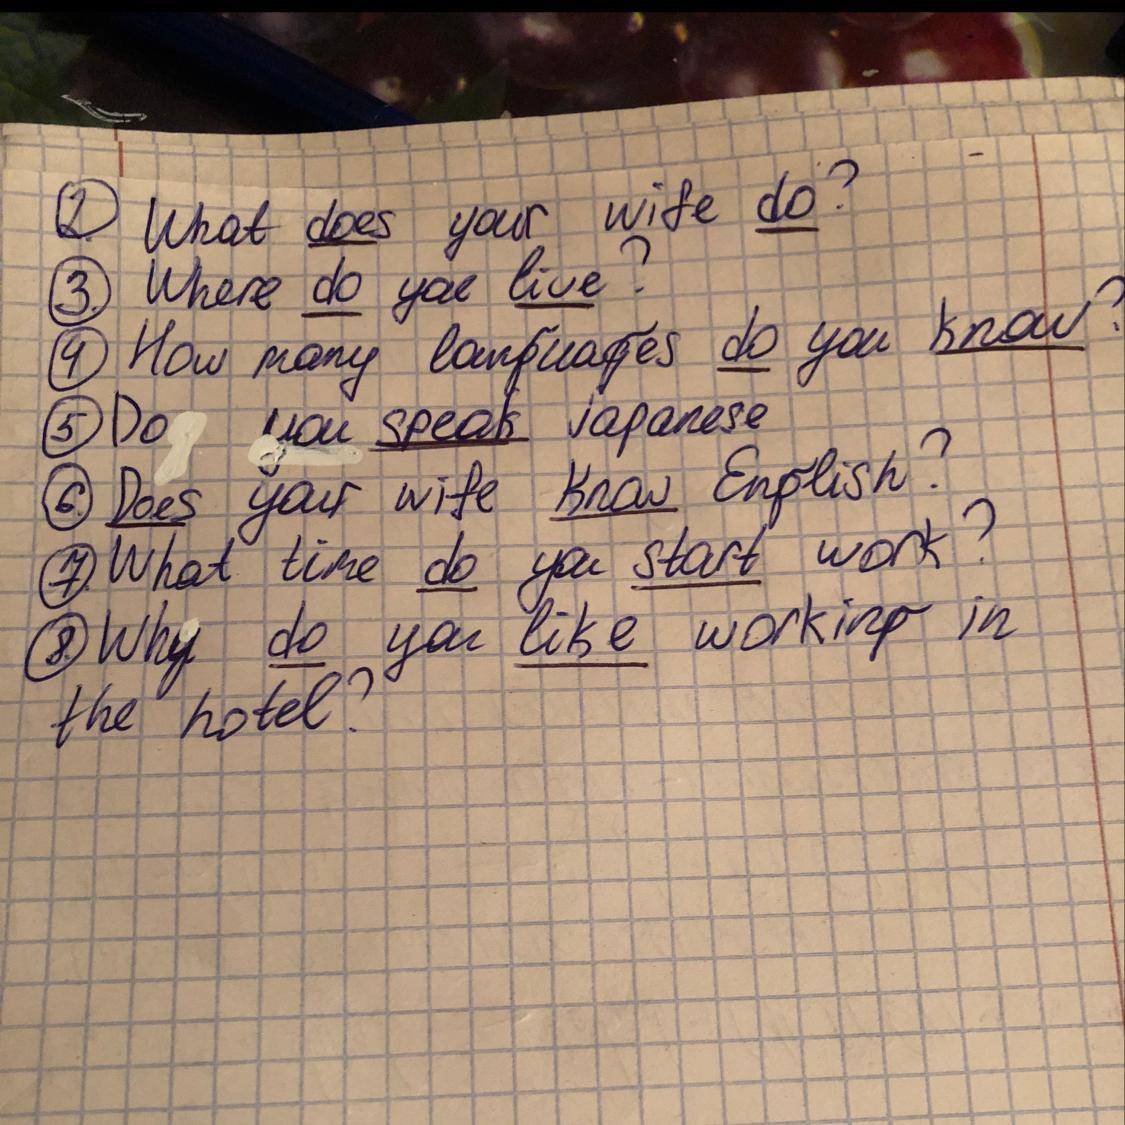 2. What does your wife do?
3. Where do you live?
4 How many languages do you know?
5 Do you speak japanese
6. Does your wife know English?
7. What time do you start work?
8. Why do you like working in
the hotel?